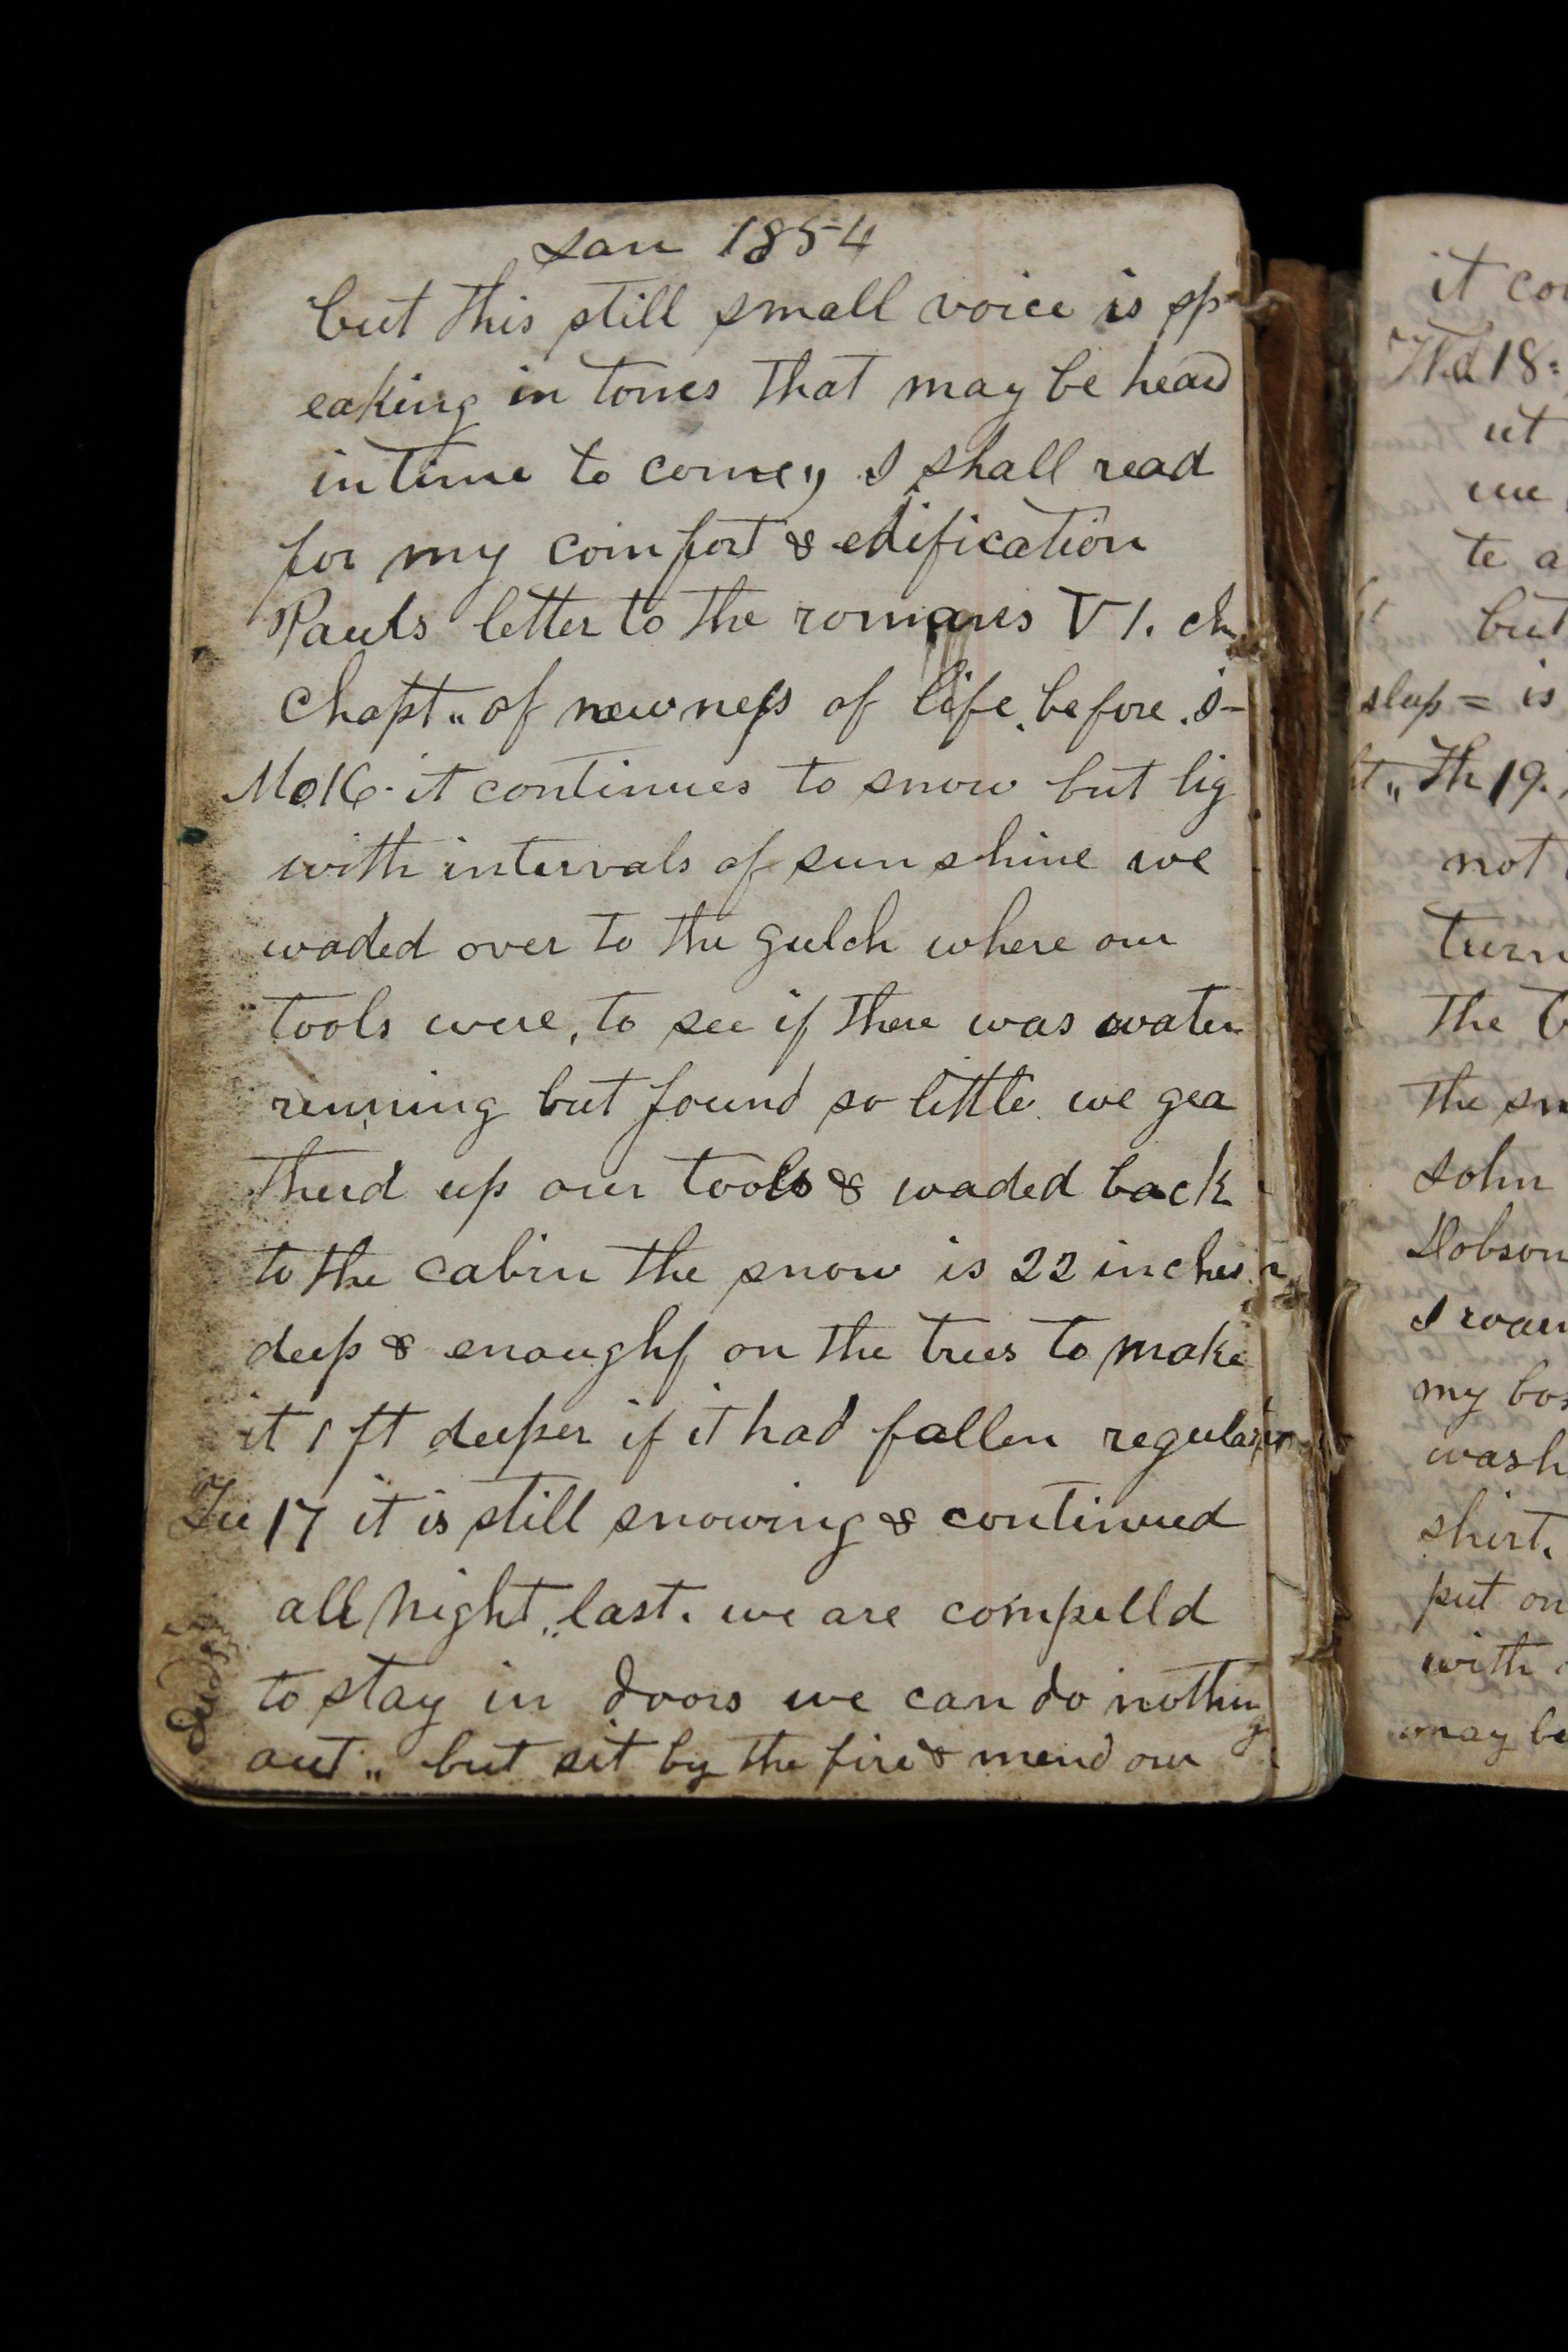 Jan 1854
but this still small voice is sp
eaking in tones that may be heard
in time to come,, I shall read
for my comfort & edification
Pauls letter to the romans VI. ch
Chapt.. of newness of life. before. s-
Mo16. it continues to snow but lig
with intervals of sun shine we
waded over to the gulch where our
tools were, to see if there was water
running but found so little we gea
therd up our tools & waded back
to the cabin the snow is 22 inches
deep & enough on the trees to make
it 1 ft deeper if it had fallen regular
Tu 17 it is still snowing & continued
all night.. last. we are compelld
to stay in doors we can do nothing
out.. but sit by the fire & mend our
it co
Wd 18:
ut
we
te a
but
sleep = is
t.. Th 19.
not
turn
the
the sn
John
Dobson
I wa
my bo
wash
shirt.
put on
with
may be